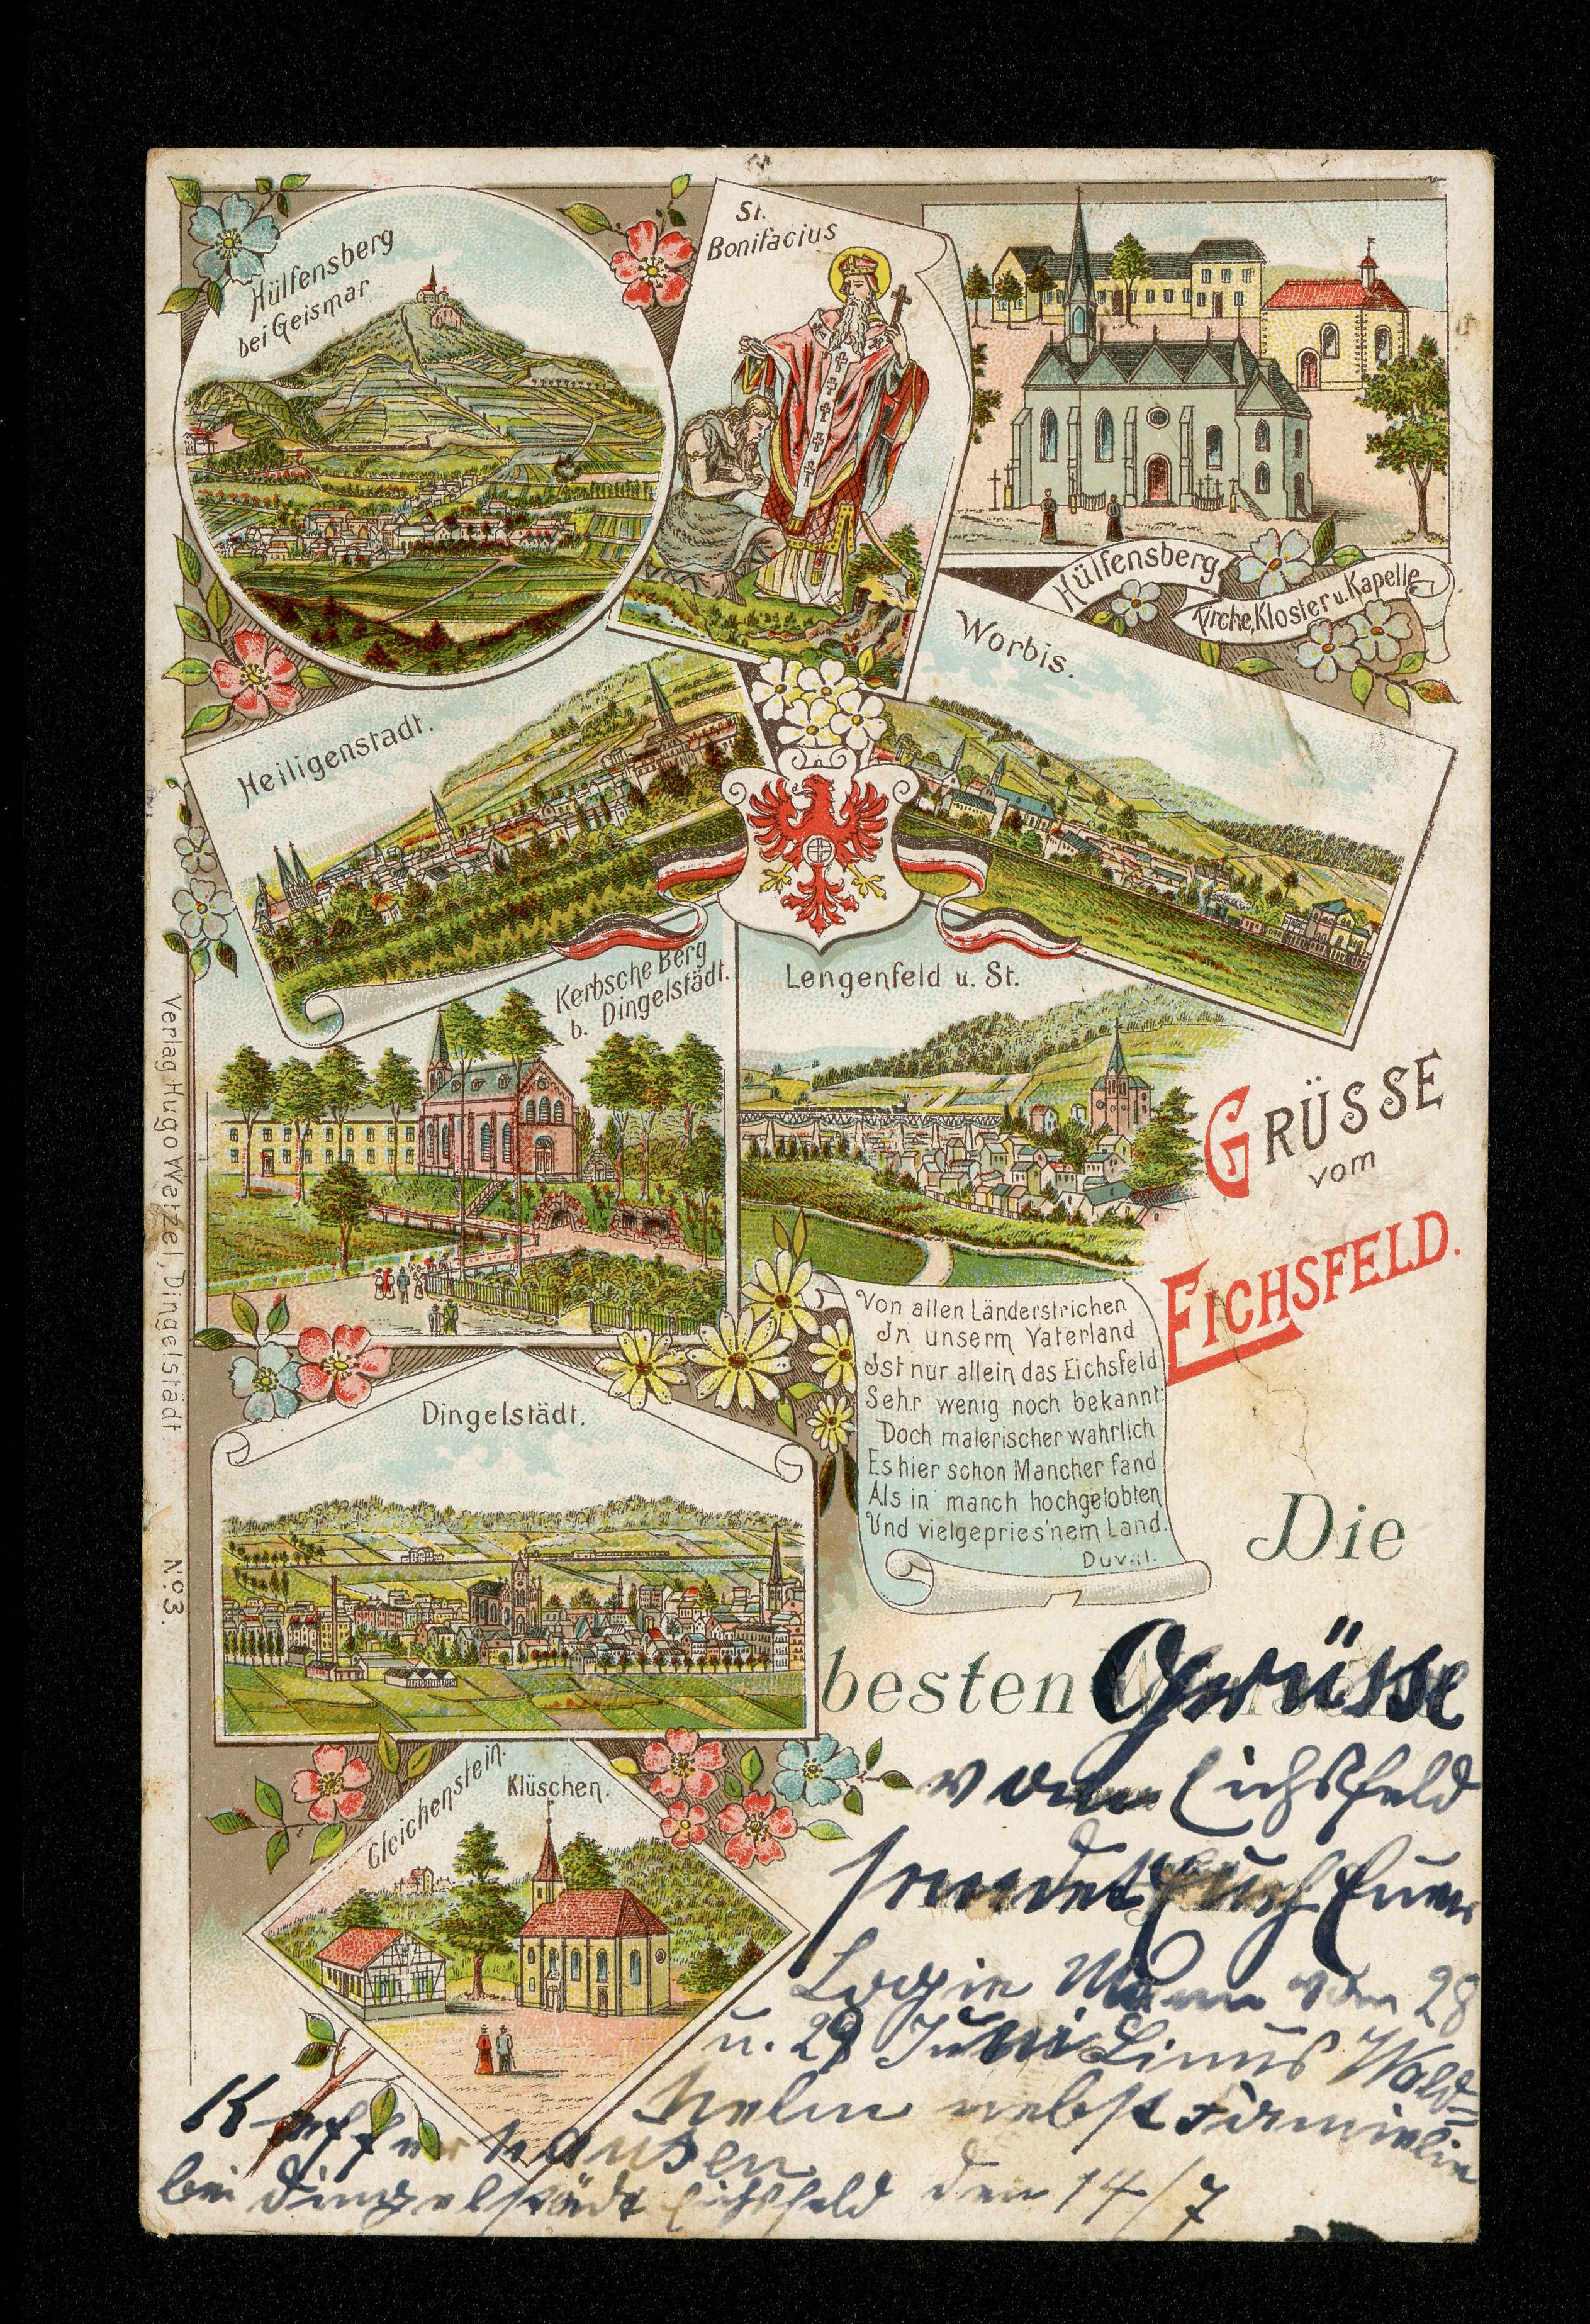 Hülfensberg
bei Geismar
St.
Bonifacius
Hülfensberg
Kirche, Kloster u. Kapelle
Worbis.
Heiligenstadt.
Kerbsche Berg
b. Dingelstädt.
Lengenfeld u. St.
GRÜSSE
vom
EICHSFELD.
Von allen Länderstrichen
In unserm Vaterland
Ist nur allein das Eichsfeld
Sehr wenig noch bekannt:
Doch malerischer wahrlich
Es hier schon Mancher fand
Als in manch hochgelobten
Und vielgepries'nem Land.
Duval.
Dingelstädt.
Gleichenstein.
Klüschen.
Verlag Hugo Warzel, Dingelstädt
No. 3.
Die
besten Grüsse
vom Eichsfeld
sendet Euch Euer
Logie Mann vom 28
u. 29 Juni Linus Wald=
helm nebst Familie
Kefferhausen
bei Dingelstädt Eichsfeld den 14/7